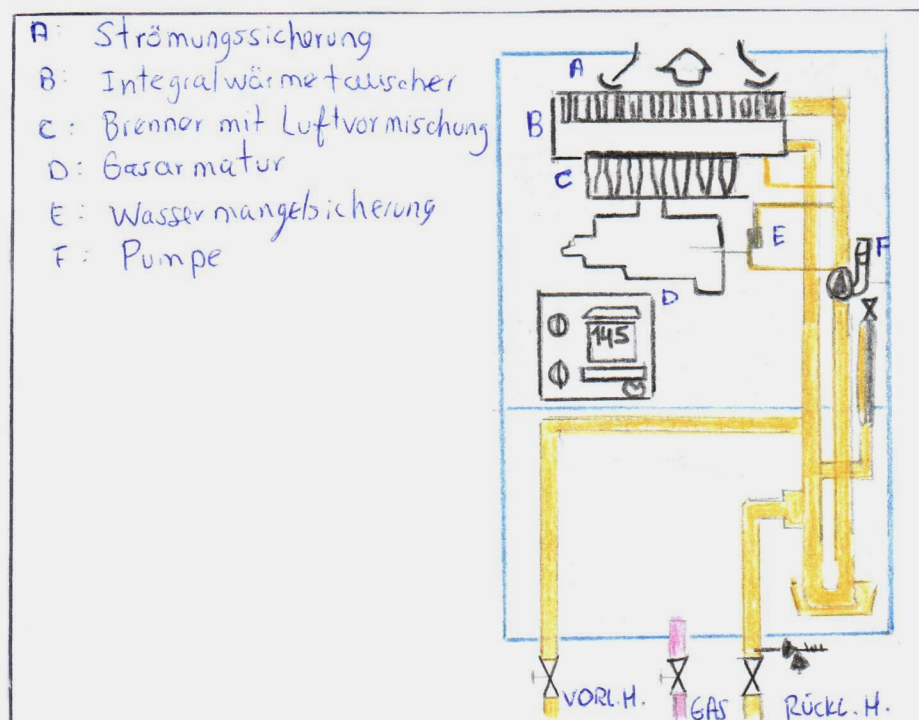 A: Strömungssicherung
B: Integralwärmetauscher
C: Brenner mit Luftvormischung
D: Gasarmatur
E: Wassermangelsicherung
F: Pumpe
A
B
C
E
F
D
145
VORL.H.
GAS
RÜCKL.H.